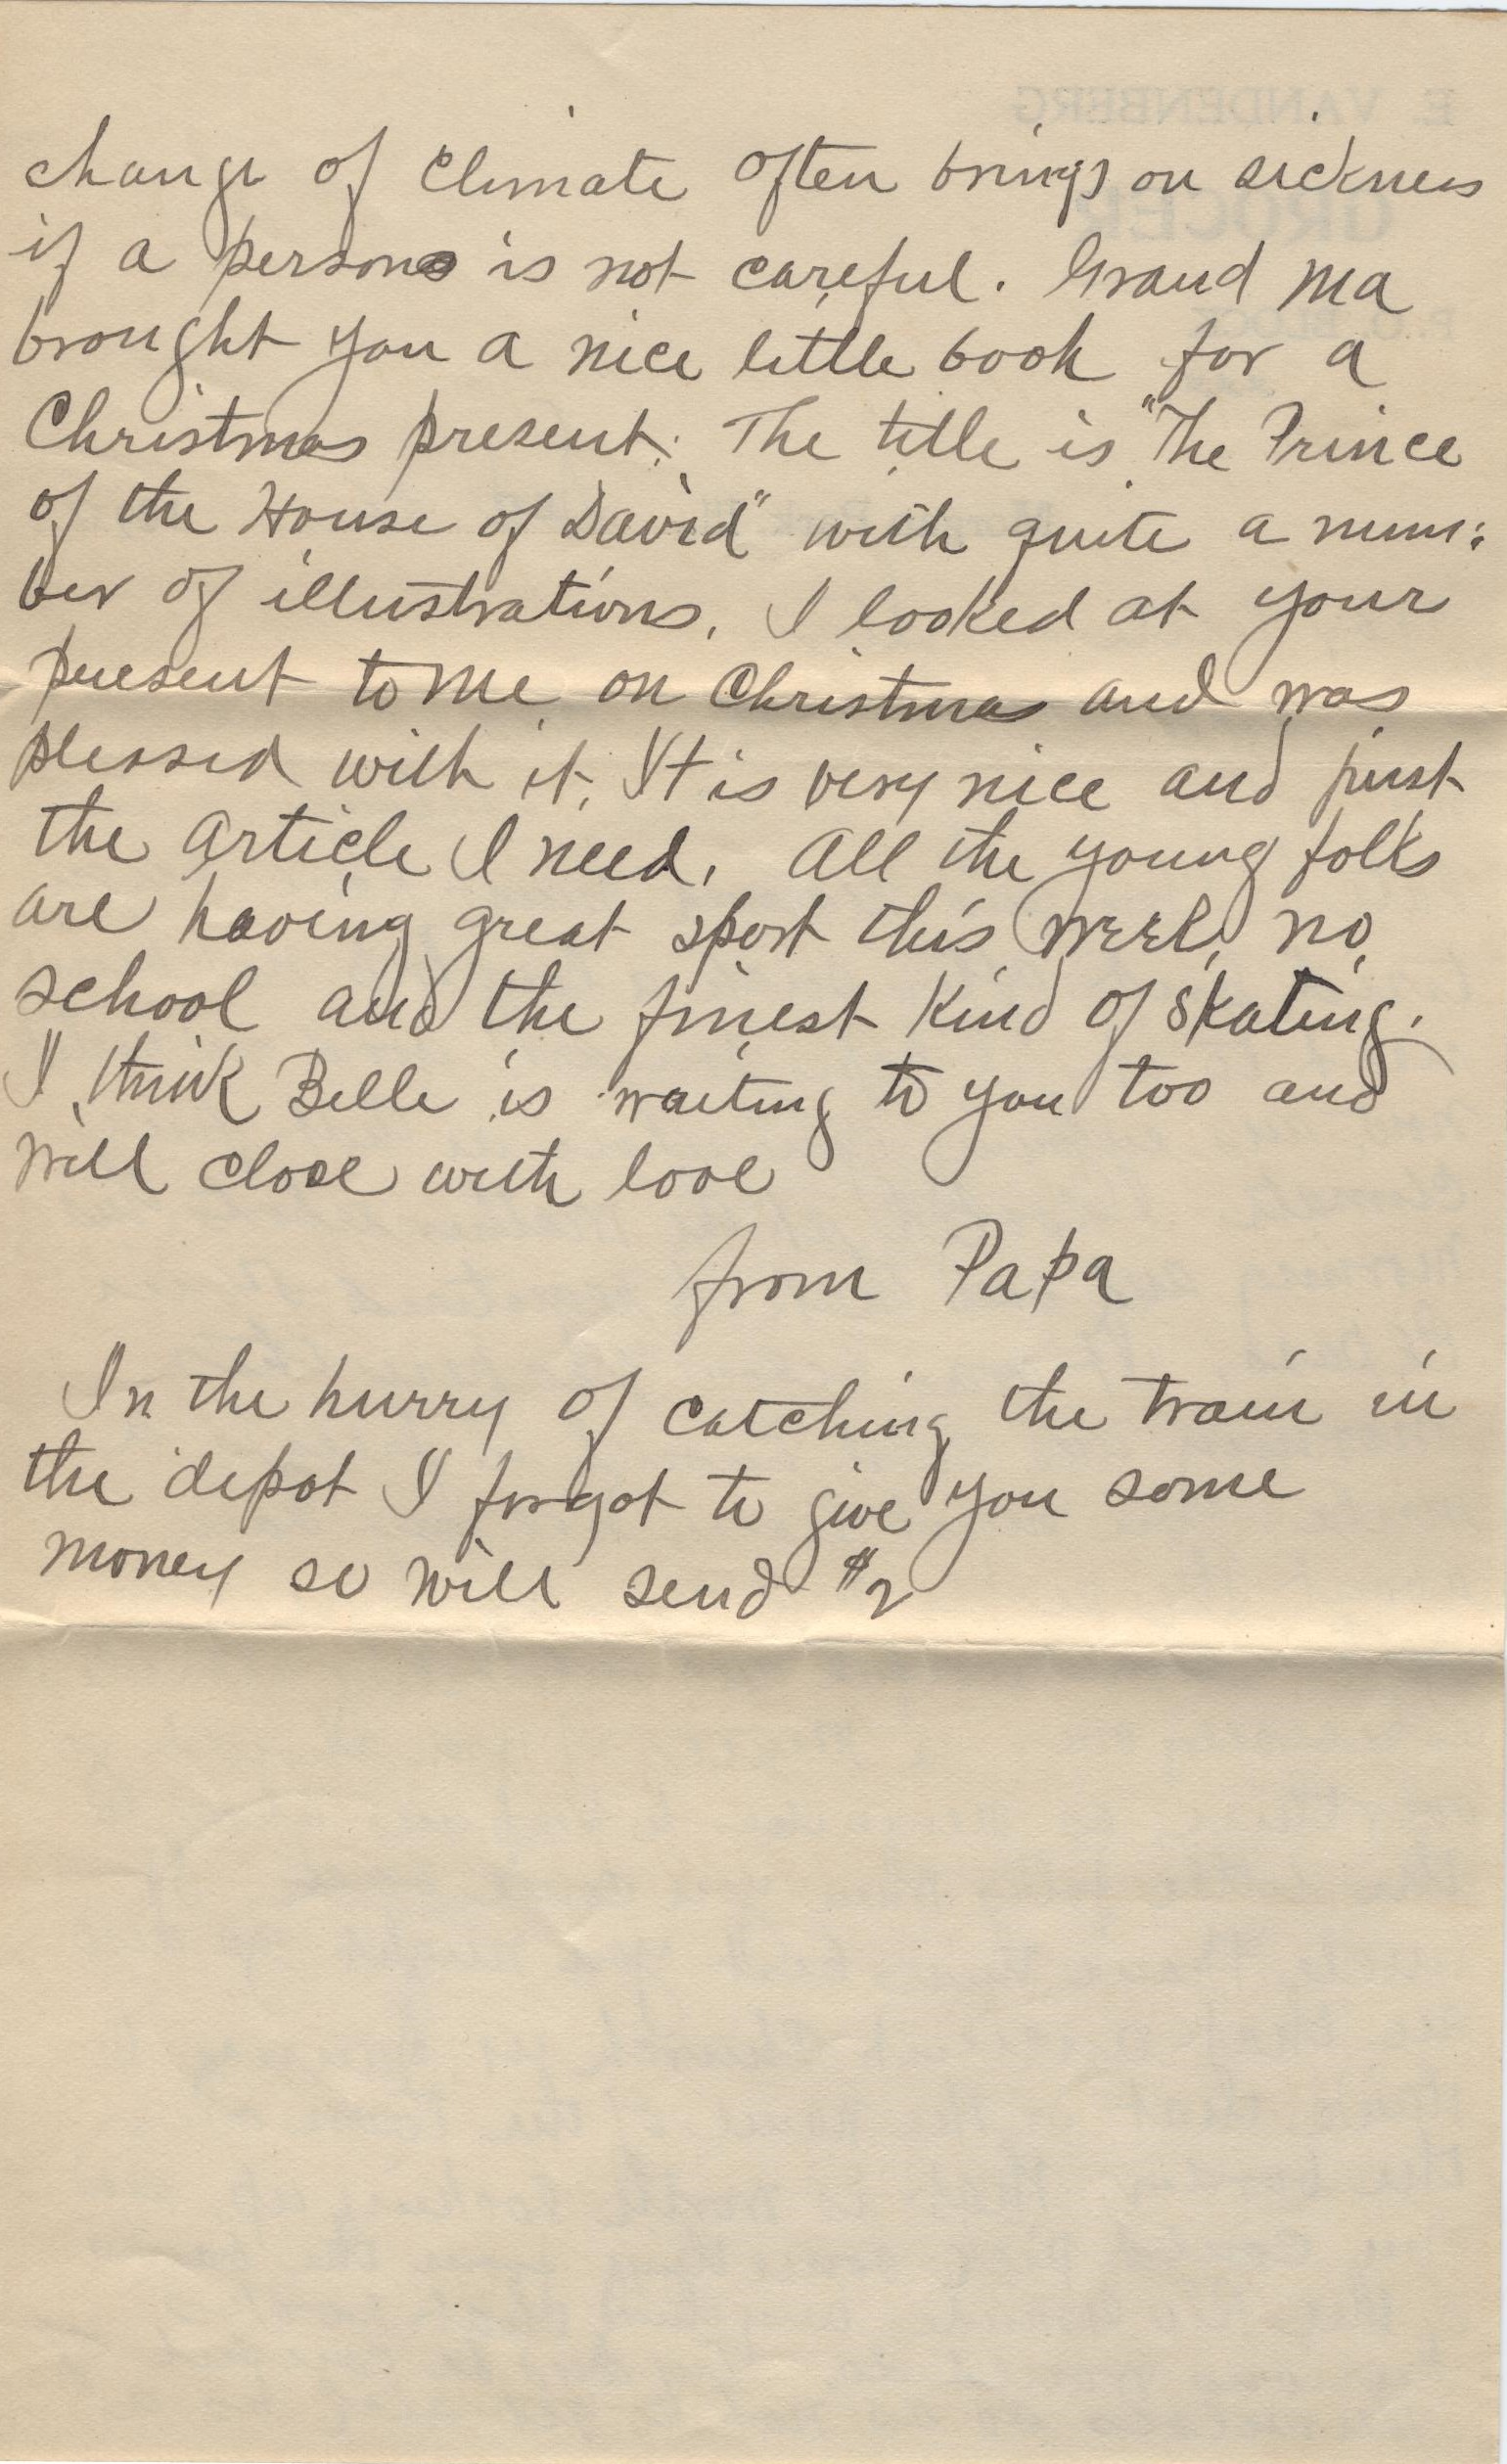 E. VANDENBERG
GROCER
change of climate often brings on sickness
if a person is not careful. Grand Ma
brought you a nice little book for a
Christmas present. The title is "The Prince
of the House of David" with quite a num:
ber of illustrations. I looked at your
present to me on Christmas and was
plessed with it. It is very nice and just
the article I need. All the young folks
are having great sport this week, no
school and the finest kind of skating.
I think Belle is waiting to you too and
will close with love
from Papa
In the hurry of catching the train in
the depot I forgot to give you some
money so will send $2